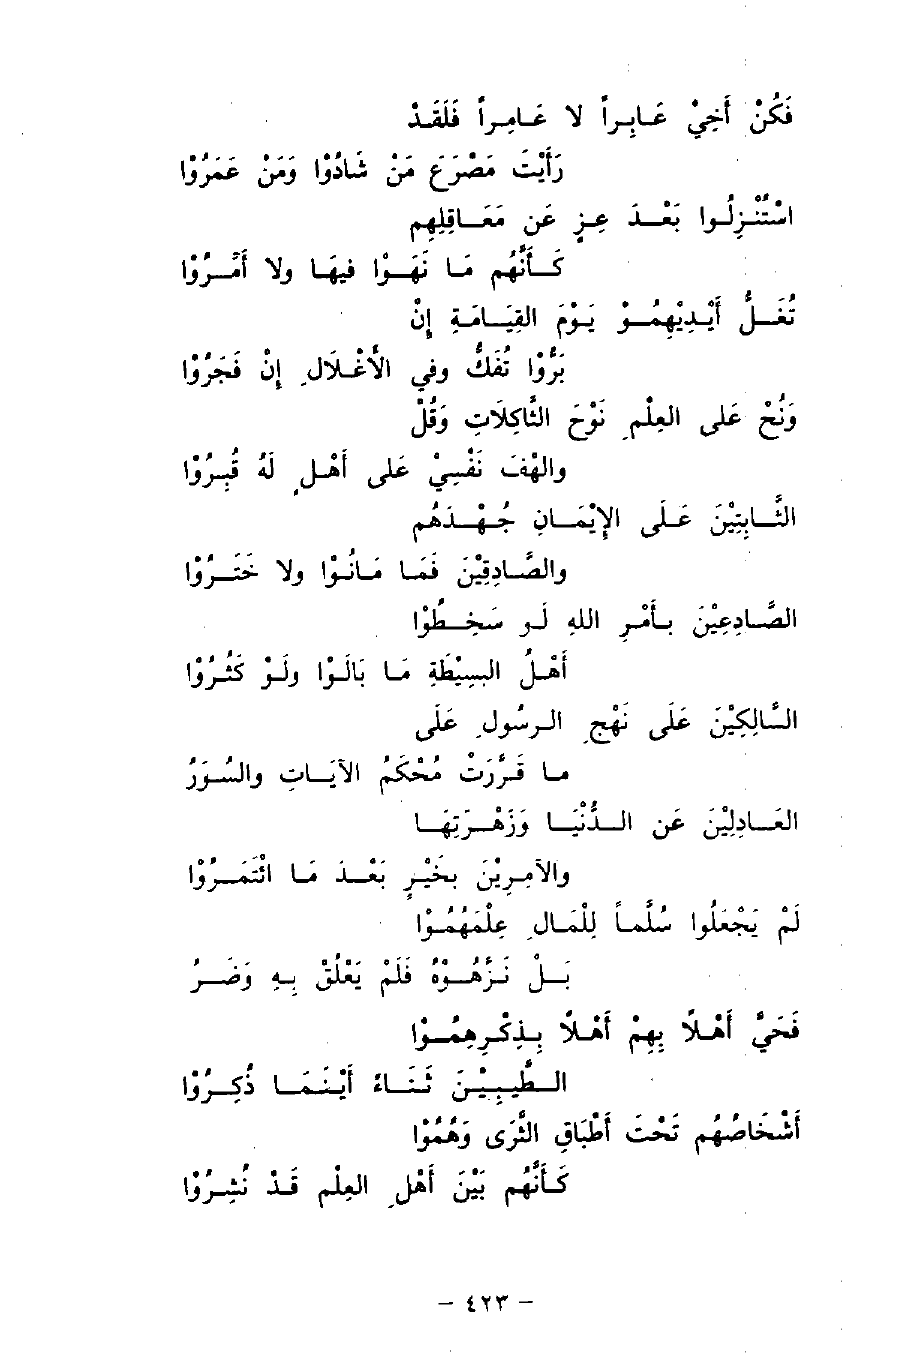 فَكُنْ أَخِيْ عَابِراً لا عَامِراً فَلَقَدْ
رَأَيْتَ مَصْرَعَ مَنْ شَادُوْا وَمَنْ عَمَرُوْا
اسْتُنْزِلُوا بَعْدَ عِزٍ عَن مَعَاقِلِهِم
كَأَنَّهُم مَا نَهَوْا فِيهَا ولا أَمَرُوْا
تُغَلُّ أَيْدِيْهِمُوْ يَوْمَ القِيَامَةِ إِنْ
بَرُّوْا تُفَكُّ وفي الأَغْلَالِ إِنْ فَجَرُوْا
وَنُحْ عَلى العِلْمِ نَوْحَ الثَّاكِلَاتِ وَقُلْ
والهْفَ نَفْسِيْ عَلى أَهْلٍ لَهُ قُبِرُوْا
الثَّابِتِيْنَ عَلَى الإِيْمَانِ جُهْدَهُم
والصَّادِقِيْنَ فَمَا مَانُوْا ولا خَتَرُوْا
الصَّادِعِيْنَ بِأَمْرِ اللهِ لَو سَخِطُوْا
أَهْلُ البسِيْطَةِ مَا بَالَوْا ولَوْ كَثُرُوْا
السَّالِكِيْنَ عَلَى نَهْجِ الرسُولِ عَلَى
ما قَرَّرَتْ مُحْكَمُ الآيَاتِ والسُّوَرُ
العَادِلِيْنَ عَن الدُّنْيَا وَزَهْرَتِهَا
والآمِرِيْنَ بِخَيْرٍ بَعْدَ مَا ائْتَمَرُوْا
لَمْ يَجْعَلُوا سُلَّماً لِلْمَالِ عِلْمَهُمُوْا
بَلْ نَزَّهُوْهُ فَلَمْ يَعْلُقْ بِهِ وَضَرُ
فَحَيَّ أَهْلاً بِهِمْ أَهْلاً بِذِكْرِهِمُوْا
الطَّيِبِيْنَ ثَنَاءً أَيْنَمَا ذُكِرُوْا
أَشْخَاصُهُم تَحْتَ أَطْبَاقِ الثَّرَى وَهُمُوْا
كَأَنَّهُم بَيْنَ أَهْلِ العِلْمِ قَدْ نُشِرُوْا
– ٤٢٣ –